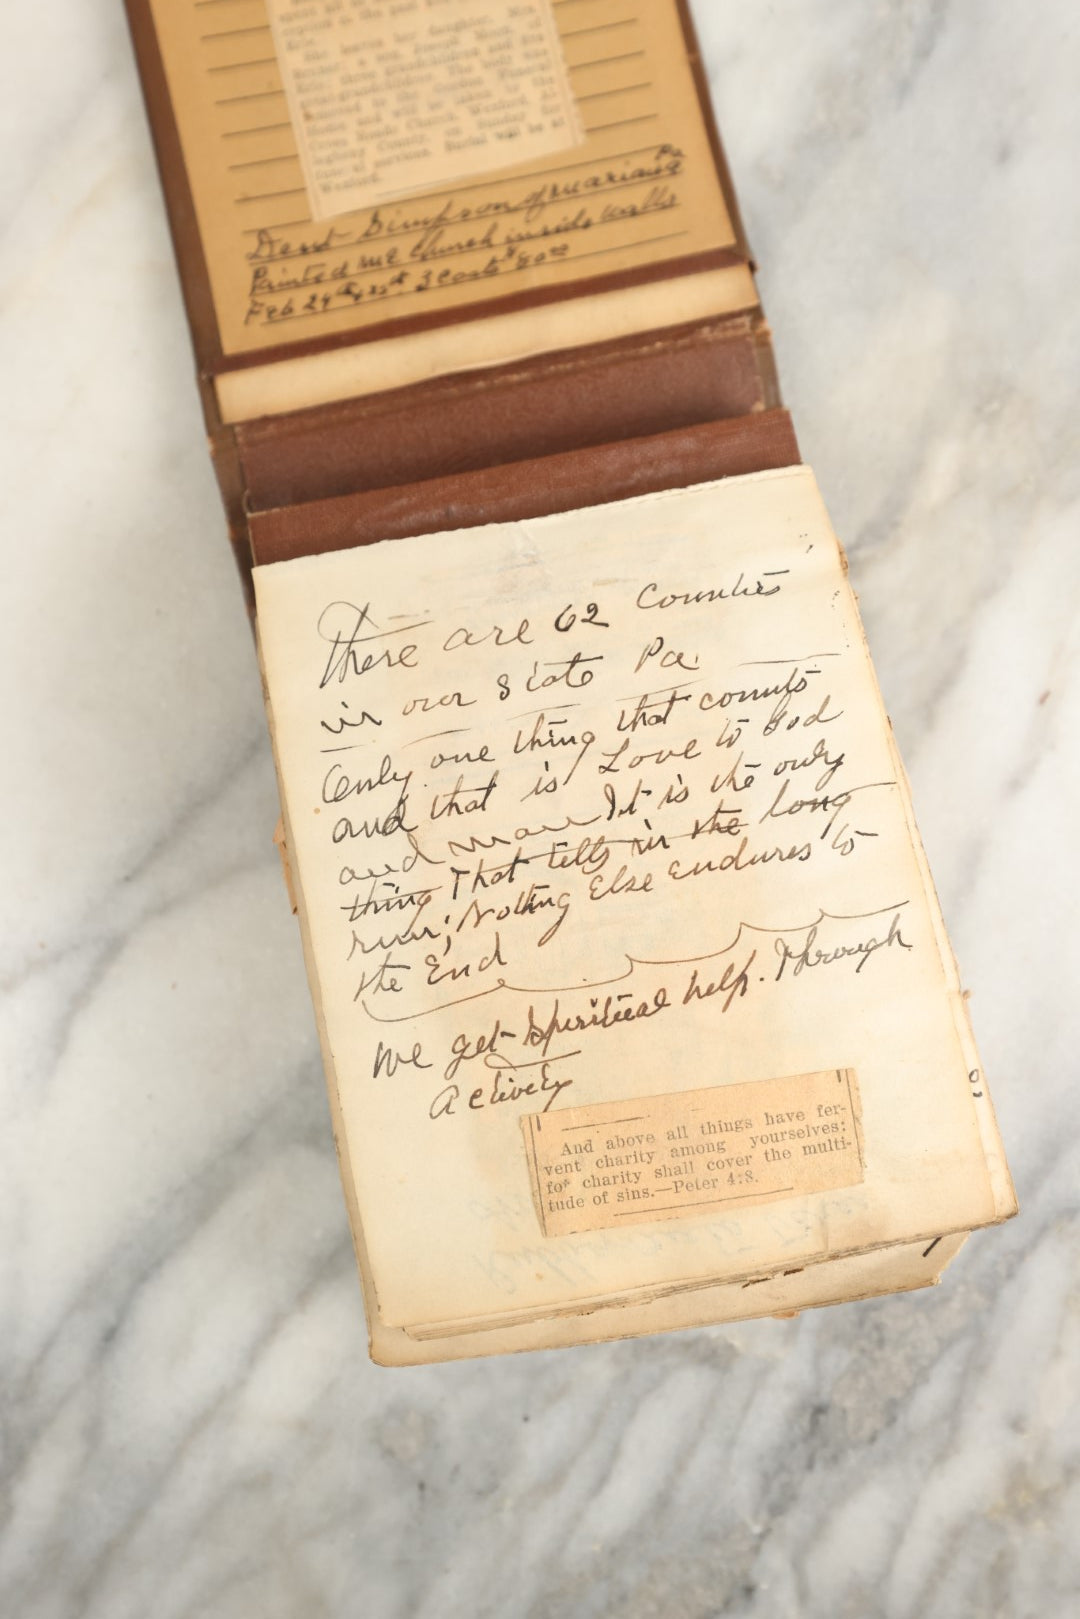 Erie.
She leaves her daughter, Mrs.
Erie; three grandchildren and five
great-grandchildren. The body was
Home and will be taken to the
Cross Roads Church, Wexford, Al-
legheny County, on Sunday for
funeral services. Burial will be at
Wexford.
Dent Simpson of Mariana Pa
Painted ME Church inside walls
Feb 29th 3 coats $80.00
There are 62 Counties
in our State Pa.
Only one thing that counts
and that is Love to God
and man It is the only
thing That tells in the long
run; Nothing Else Endures to
the End
We get Spiritual help. Through
Activety
And above all things have fer-
vent charity among yourselves:
for charity shall cover the multi-
tude of sins.—Peter 4:8.